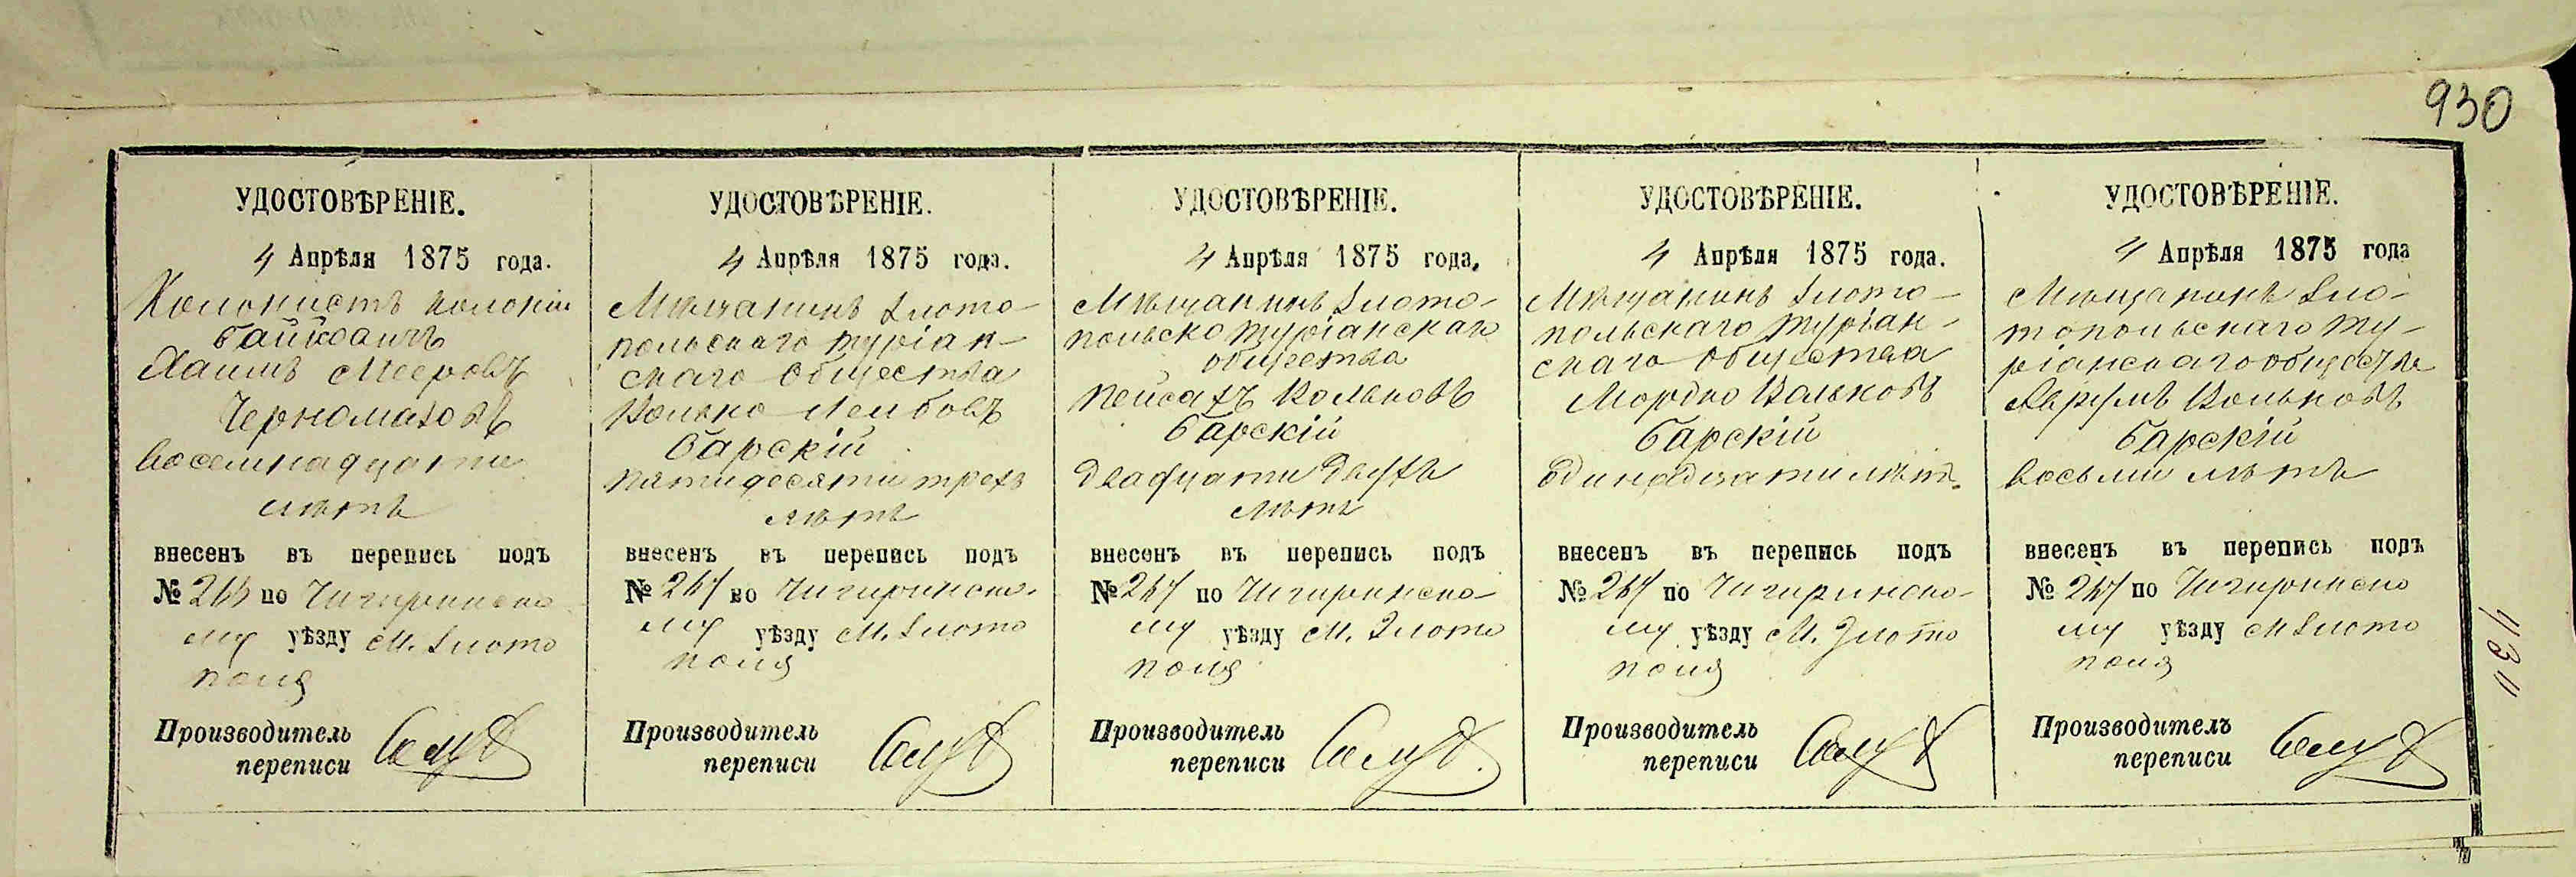 930
УДОСТОВѢРЕНІЕ.
4 Апрѣля 1875 года.
Колонистъ колоніи
Хаимъ Мееровъ
восемнадцати
лѣтъ
внесенъ въ перепись подъ
№ по Чигиринско
му уѣзду М. Злото
поля
Производитель
переписи
УДОСТОВѢРЕНІЕ.
4 Апрѣля 1875 года.
Мѣщанинъ Злото-
польскаго туріан-
скаго общества
Волько Лейбовъ
Барскій
пятидесяти трехъ
лѣтъ
внесенъ въ перепись подъ
№ 247 по Чигиринско-
му уѣзду М. Злото
поля
Производитель
переписи
УДОСТОВѢРЕНІЕ.
4 Апрѣля 1875 года.
Мѣщанинъ Злото-
польско туріанскаго
общества
Пейсахъ Вольковъ
Барскій
двадцати двухъ
лѣтъ
внесенъ въ перепись подъ
№ 247 по Чигиринско-
му уѣзду М. Злото
поля
Производитель
переписи
УДОСТОВѢРЕНІЕ.
4 Апрѣля 1875 года.
Мѣщанинъ Злото-
польскаго туріан-
скаго общества
Мордко Вольковъ
Барскій
одинадцати лѣтъ.
внесенъ въ перепись подъ
№ 247 по Чигиринско-
му уѣзду М. Злото
поля
Производитель
переписи
УДОСТОВѢРЕНІЕ.
4 Апрѣля 1875 года
Мѣщанинъ Зло-
топольскаго ту-
ріанскаго общества
Аврумъ Вольковъ
Барскій
восьми лѣтъ
внесенъ въ перепись подъ
№ 247 по Чигиринско
му уѣзду М Злото
поля
Производитель
переписи